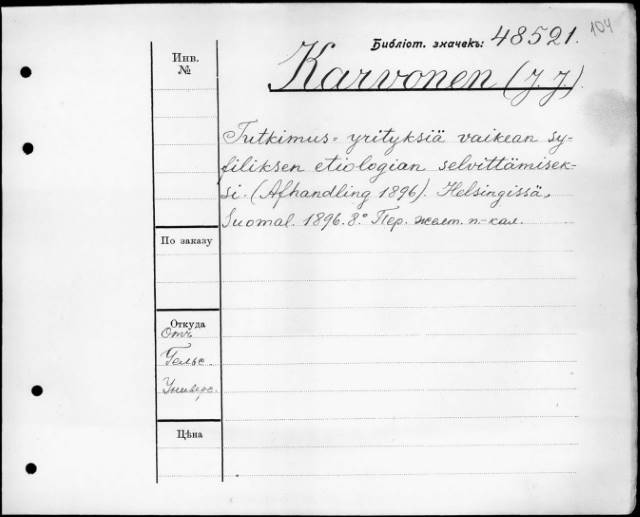 104
Библіот. значекъ: 48521.
Инв.
№
Karvonen (J. J).
Tutkimus-yrityksiä vaikean sy-
filiksen etiologian selvittämisek-
si. (Afhandling 1896). Helsingissä,
Suomal. 1896. 8.° Пер. желт. п.-кал.
По заказу
Откуда
Отъ
Гельс.
Универс.
Цѣна